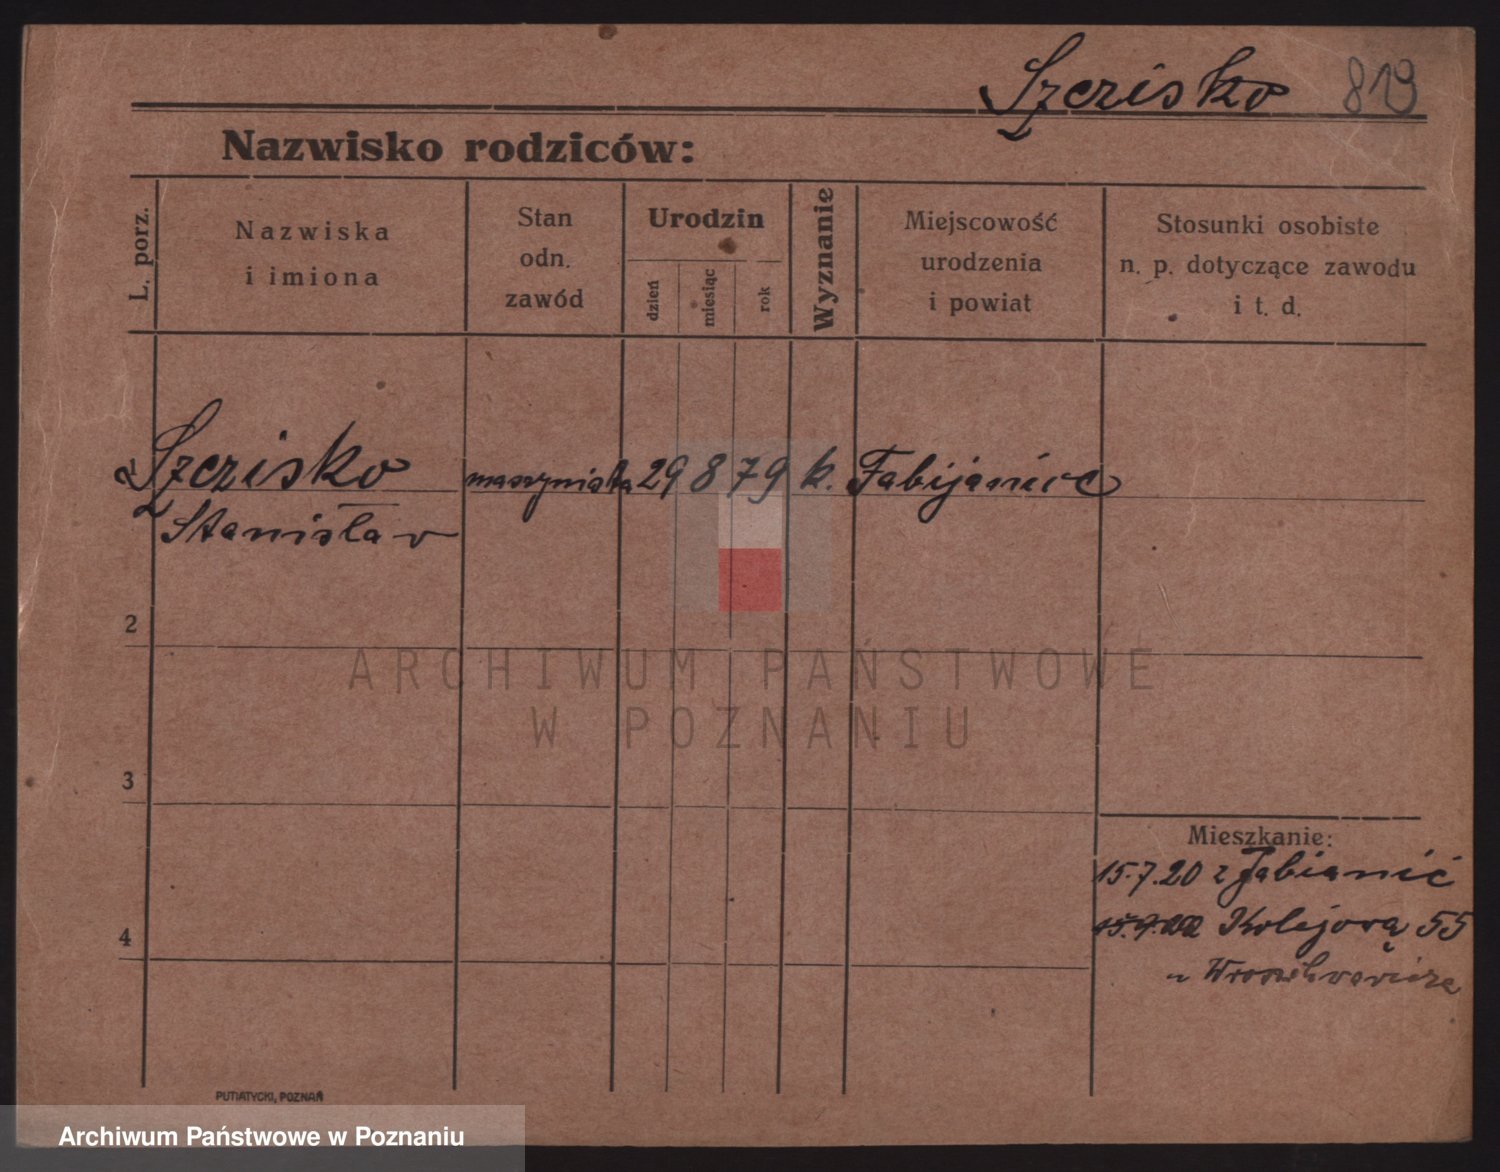 Szczisko 819
Nazwisko rodziców:
L. porz.
Nazwiska
i imiona
Stan
odn.
zawód
Urodzin
dzień
miesiąc
rok
Wyznanie
Miejscowość
urodzenia
i powiat
Stosunki osobiste
n. p. dotyczące zawodu
i t. d.
Szczisko maszynista 29 8 79 k. Fabijanice
Stanisław
2
ARCHIWUM PAŃSTWOWE
W POZNANIU
3
Mieszkanie:
15.7.20 z Fabianić
Kolejową 55
4
PUTIATYCKI, POZNAŃ
Archiwum Państwowe w Poznaniu